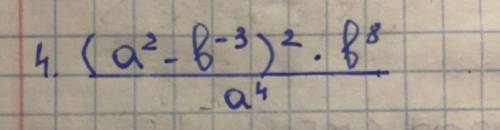 4. (a² - b⁻³)² · b⁸
a⁴